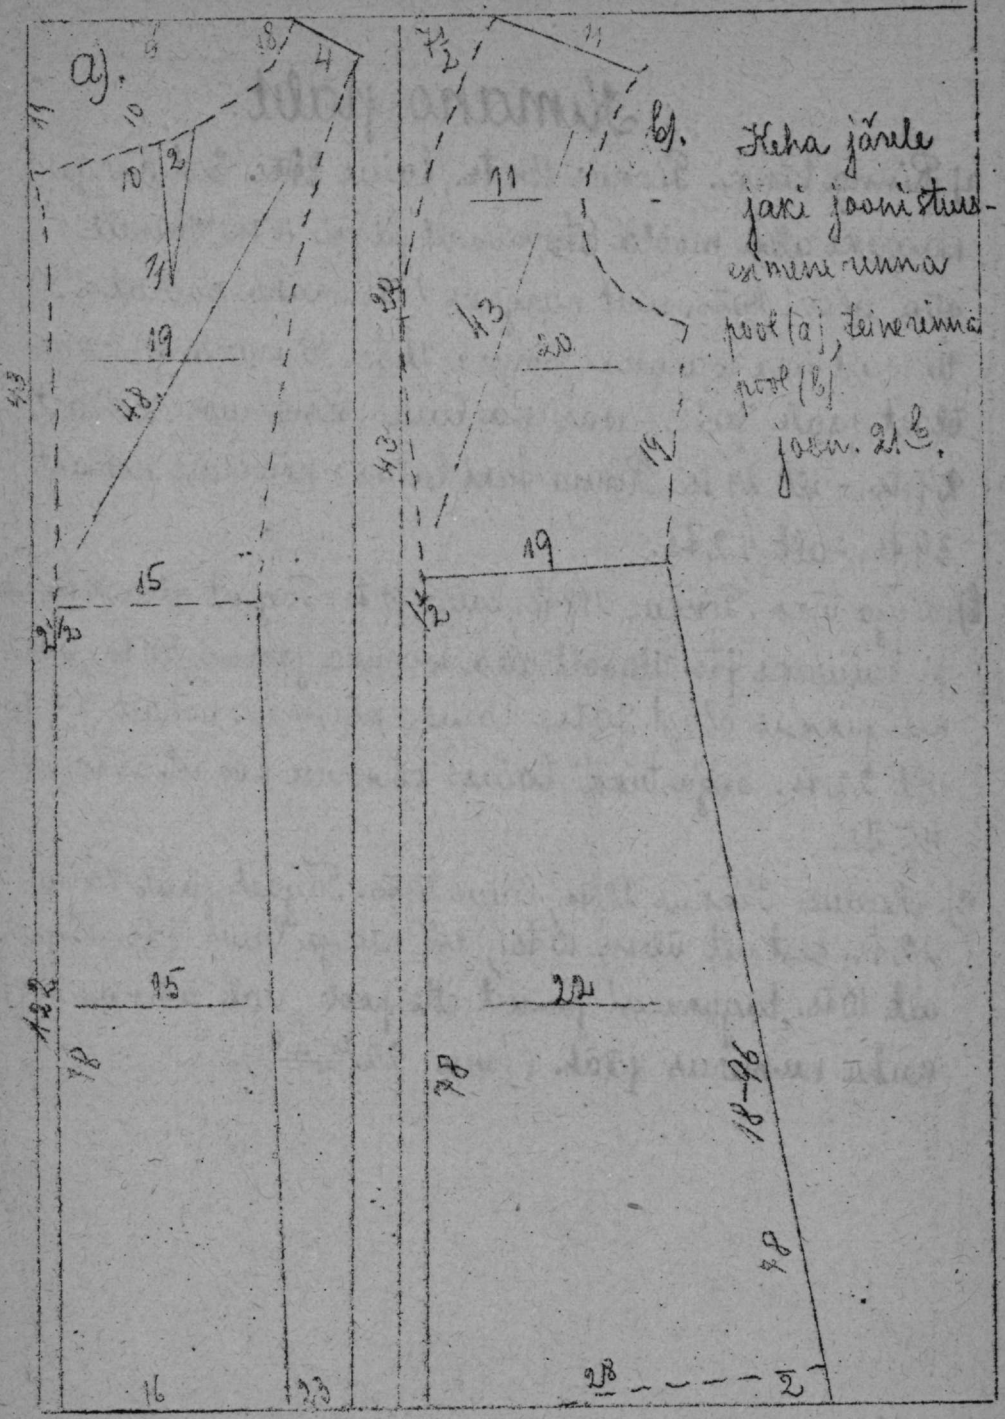 a).
9
18
4
11
10
10
2
11
19
48.
43
15
2 1/2
15
122
78
16
23
7 1/2
11
11
43
20
43
19
19
1 1/2
22
78
18-96
78
28
2
b).
Keha järele
jaki joonistus-
esimene rinna
pool (a), teine rinna
pool (b)
joon. 21 b.